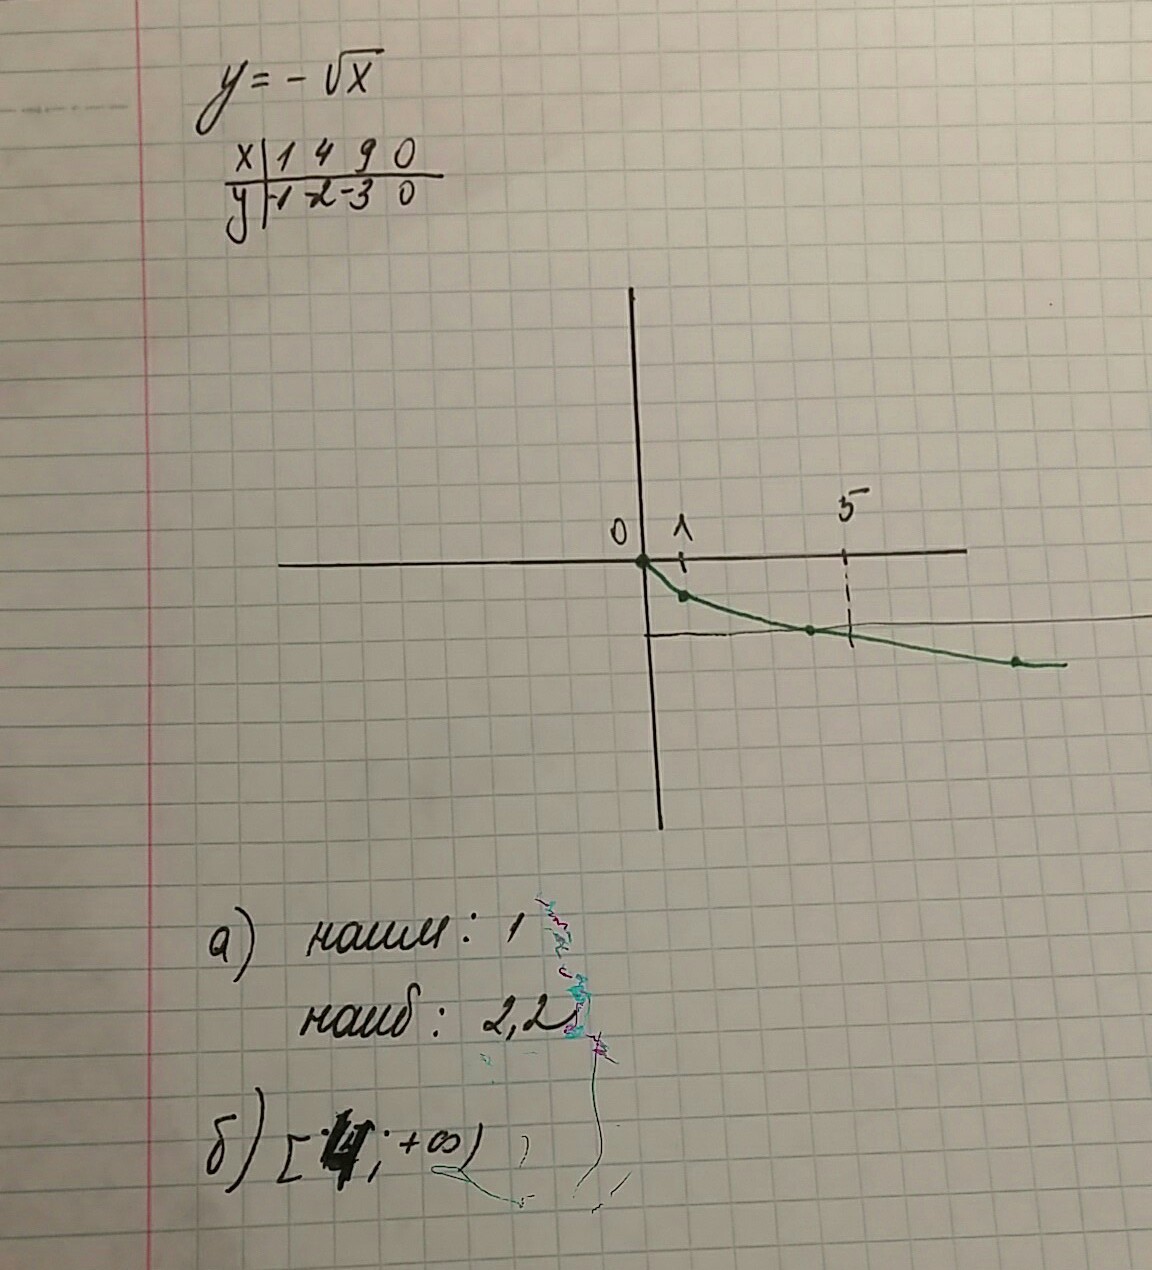 y = - √x
x | 1 4 9 0
y | -1 -2 -3 0
0 1 5
а) наим: 1
наиб: 2,2
б) [4; +∞)